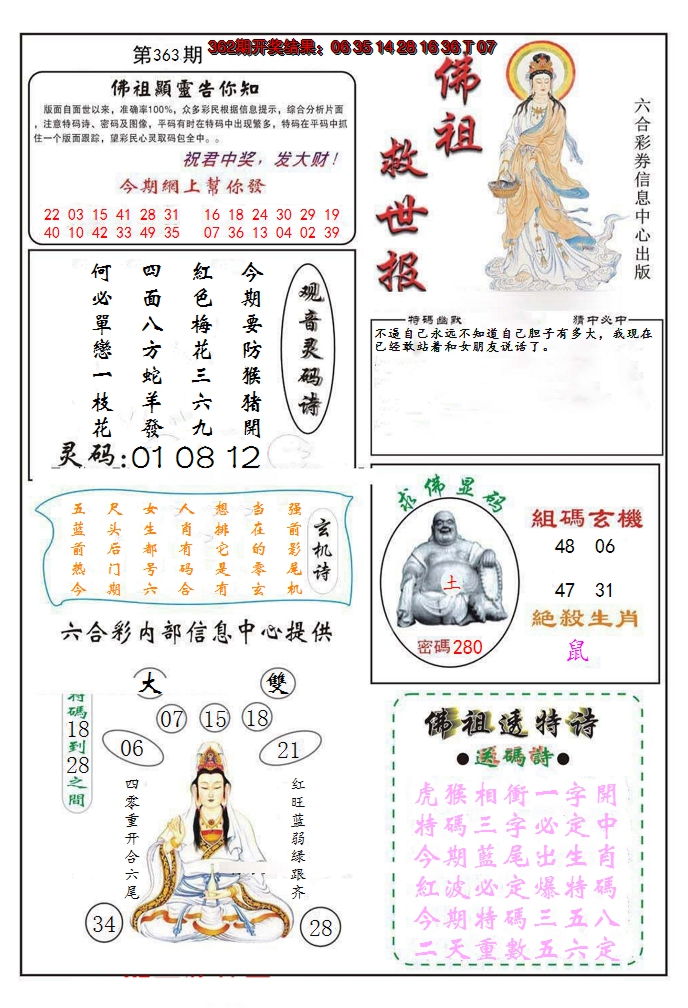 第363期
362期开奖结果：06 35 14 28 16 36 T 07
佛祖顯靈告你知
版面自面世以来，准确率100%，众多彩民根据信息提示，综合分析片面
，注意特码诗、密码及图像，平码有时在特码中出现繁多，特码在平码中抓
住一个版面跟踪，望彩民心灵取码包全中。。
祝君中奖，发大财！
今期網上幫你發
22 03 15 41 28 31 16 18 24 30 29 19
40 10 42 33 49 35 07 36 13 04 02 39
佛祖
救世报
六合彩券信息中心出版
观音灵码诗
今期要防猴猪開
紅色梅花三六九
四面八方蛇羊發
何必單戀一枝花
灵码:01 08 12
特码幽默
猜中必中
不逼自己永远不知道自己胆子有多大，我现在
已经敢站着和女朋友说话了。
玄机诗
强前影尾机
当在的零玄
想排它是有
人肖有码合
女生都号六
尺头后门期
五蓝前热今
六合彩内部信息中心提供
求佛显码
土
密碼280
組碼玄機
48 06
47 31
絕殺生肖
鼠
大
雙
特碼18到28之間
07 15 18
06
21
四零重开合六尾
红旺蓝弱緑跟齐
34
28
佛祖透特诗
●送碼詩●
虎猴相衝一字開
特碼三字必定中
今期藍尾出生肖
紅波必定爆特碼
今期特碼三五八
二天重數五六定